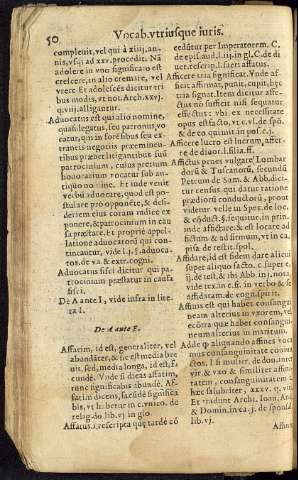 50
Vocab. vtriusque iuris.
compleuit, vel qui à xiiij, an-
nis, vsq; ad xxv. procedit. Nã
adolere in vno significato est
crescere, in alio cremare, vel
vrere Et adolescēs dicitur tri
bus modis, vt not. Arch. xxvij.
q. viij. alligantur.
Aduocatus est qui alio nomine,
quasi legatus, seu patronus vo
catur, qui in forēsibus seu ex-
traneis negotiis
tibus præbet litigantibus suū
patrocinium, cuius pretium
honorarium vocatur sub an-
tiquo nomine. Et inde venit
verbū aduocare, quod est po-
stulare pro opponēte, & desi-
derium eius coram iudice ex
ponere, & patrocinium in cau
sa præstare. Et propriè appel-
latione aduocatorū qui con-
tinentur, vide
tos. de va & extr. cogni.
Aduocatus fisci dicitur qui pa-
trocinium præstat in causa
fisci
De A ante I, vide infra in lite
ra I.
De A ante F.
Affatim, id est, generaliter, vel
abundāter, & sic est media bre
uis, sed, media longa, id est, fa
cundè. Vnde si dicas affatim,
tunc significabis abundè. Af-
fatim dicens, facūdè significa
bis, vt habetur in c. vnico. de
relig. do lib. vj in glo.
Affatus, i, rescripta quę tardè cō
cedūtur per Imperatorem. C.
de episc. aud. l. iij in gl. C. de di
uer. rescrip. l. sacri affatus.
Afficere tria significat. Vnde af-
ficit affirmat, punit, cupit, hęc
tria signat. Item dicitur affe-
ctus nō sufficit nisi sequatur
effectus: vbi ex necessitate
opus est facto, vt
& de eo quæ
Afficere lucro est lucrum, affer-
re de diuor. l. si filia. ff.
Affictus penes vulgares Lombar
dorū & Tuscanorū, secundū
Petrum de Sam. & Abb. dici-
tur census qui datur ratione
prædiorū conductorū, prout
videtur velle in
& cōduct. §. sequitur, in prin.
inde affictare: & est locare ad
fictum & ad firmum, vt in ca.
pia de restit. spol.
Affidare, id est fidem dare alicui
super aliquo facto. c. super e
ij. de test, & ibi Abb. in j. nota,
vide tex. in c. ff. in verbo & se
affidatam. de cogn. spirit.
Affinis est qui habet consangui-
neam alterius in vxorem, vel
econtra quæ habet consangui-
neum alterius in maritum.
Adde q; aliquando affines voca
mus consanguinitate coniun
ctos. l. si mulier. de don. inter
vir. & vxo & similiter affini-
tatem, consanguinitatem in
Et vtrunc Archi. Ioan. And.
& Domin. in ca. j. de sponsal.
lib. vj.
Affini